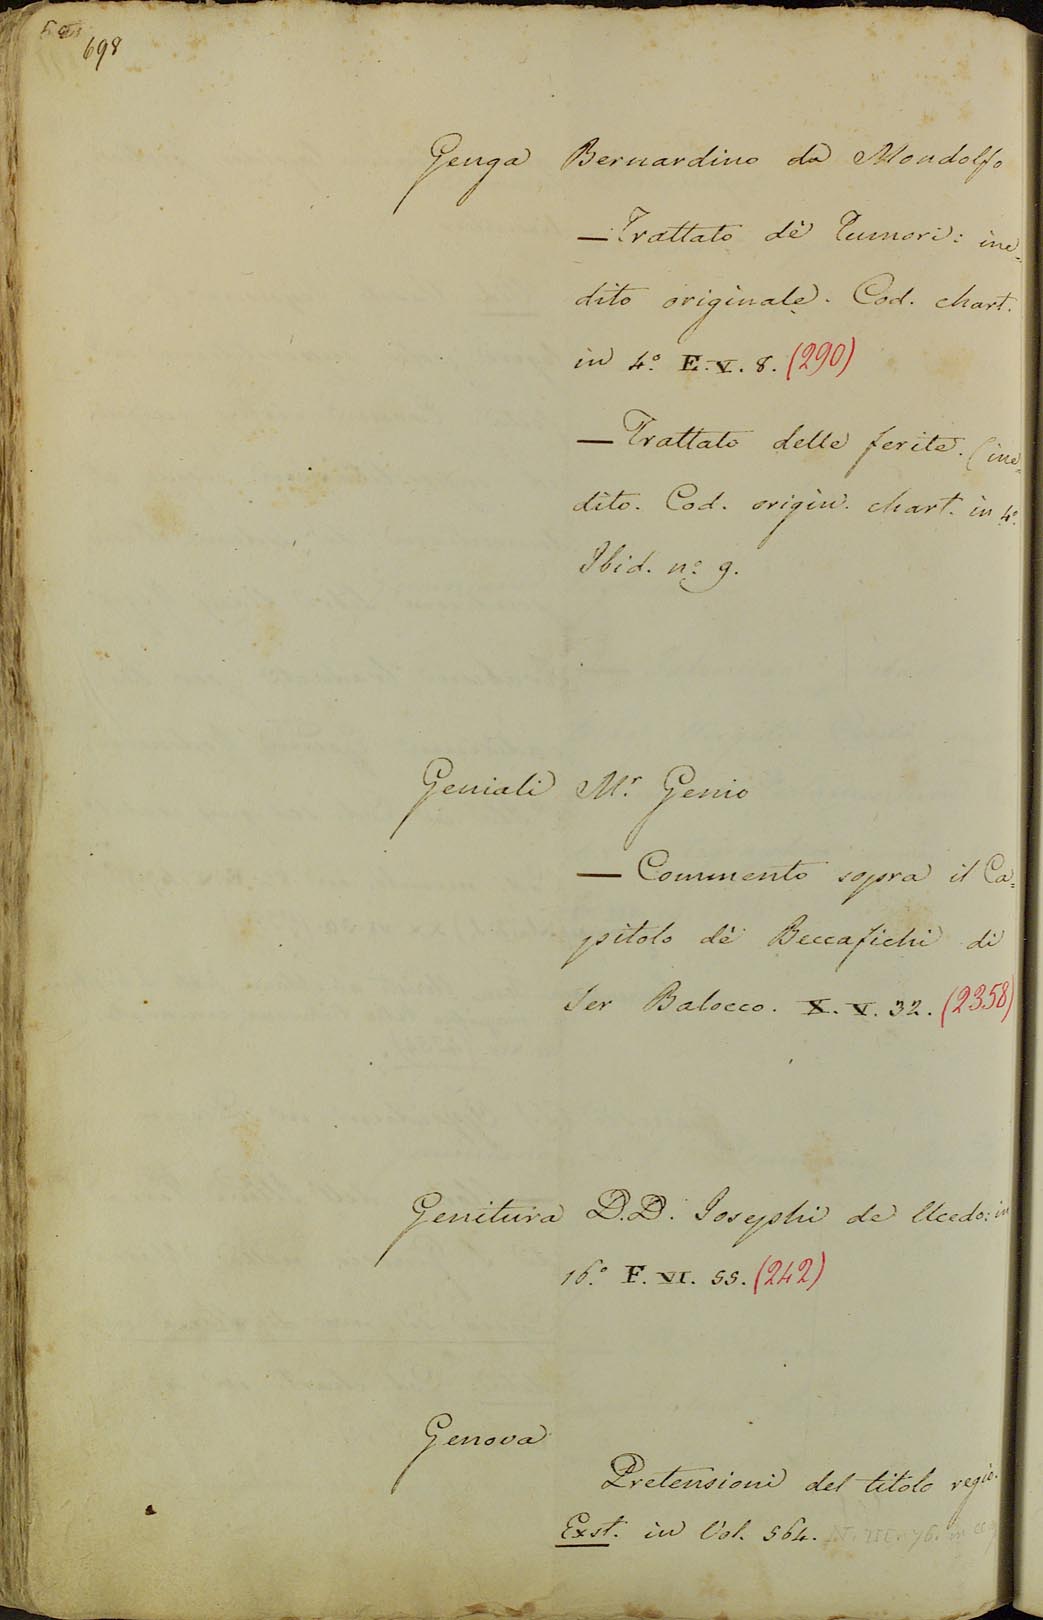 698
Genga Bernardino da Mondolfo
— Trattato dè Tumori: ine=
dito originale. Cod. chart.
in 4.° E.V. 8. (290)
— Trattato delle ferite. (ine=
dito. Cod. origin. chart. in 4.°
Ibid. n.° 9.
Geniali M.r Genio
— Commento sopra il Ca=
pitolo dè Beccafichi di
Ser Balocco. X. V. 32. (2358)
Genitura D.D. Josephi de Ucedo: in
16.° F. VI. 55. (242)
Genova
Pretensioni del titolo regio.
Exst. in Vol. 564.